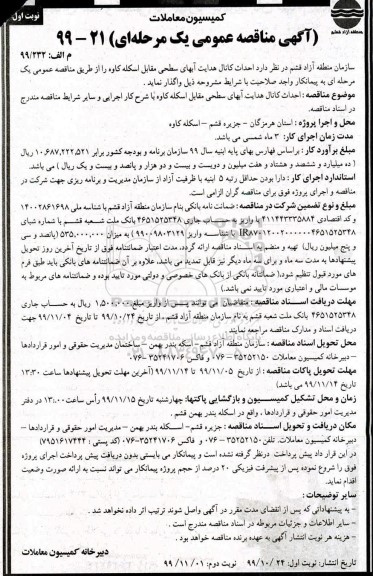 کمیسیون معاملات
نوبت اول
سازمان منطقه آزاد قشم
(آگهی مناقصه عمومی یک مرحله‌ای) ۲۱ - ۹۹
م الف: ۹۹/۲۳۲
سازمان منطقه آزاد قشم در نظر دارد احداث کانال هدایت آبهای سطحی مقابل اسکله کاوه را از طریق مناقصه عمومی یک
مرحله ای به پیمانکار واجد صلاحیت با شرایط مشروحه ذیل واگذار نماید.
موضوع مناقصه: احداث کانال هدایت آبهای سطحی مقابل اسکله کاوه با شرح کار اجرایی و سایر شرایط مناقصه مندرج
در اسناد مناقصه.
محل و اجرا پروژه: استان هرمزگان - جزیره قشم - اسکله کاوه
مدت زمان اجرای کار: ۳ ماه شمسی می باشد.
مبلغ برآورد کار: براساس فهارس بهای پایه ابنیه سال ۹۹ سازمان برنامه و بودجه کشور برابر ۱۰،۶۸۷،۲۲۲،۵۲۱ ریال
(ده میلیارد و ششصد و هشتاد و هفت میلیون و دویست و بیست و دو هزار و پانصد و بیست و یک ریال) می باشد.
استاندارد اجرای کار: دارا بودن حداقل رتبه ۵ ابنیه با ظرفیت آزاد از سازمان مدیریت و برنامه ریزی جهت شرکت در
مناقصه و اجرای پروژه فوق برای مناقصه گران الزامی است.
مبلغ و نوع تضمین شرکت در مناقصه: ضمانت نامه بانکی بنام سازمان منطقه آزاد قشم با شناسه ملی ۱۴۰۰۲۸۶۱۶۹۸
و کد اقتصادی ۴۱۱۴۴۳۳۳۵۸۸۴ یا واریز به حساب جاری ۴۶۵۱۵۲۵۳۴۸ بانک ملت شعبه قشم با شماره شبای
با شناسه واریز ۹۹۰۹۸۰۳۱۲۹ به میزان ۵۳۵،۰۰۰،۰۰۰ (پانصد و سی
و پنج میلیون ریال) تهیه و منضم به اسناد مناقصه ارائه گردد، مدت اعتبار ضمانتنامه فوق از تاریخ آخرین روز تحویل
پیشنهادها به مدت سه ماه و برای سه ماه دیگر نیز قابل تمدید می باشد، علاوه بر آن ضمانتنامه های بانکی باید طبق فرم
های مورد قبول تنظیم شود.( ضمانتنامه بانکی از بانک های خصوصی و دولتی مورد تایید بوده و ضمانتنامه های مربوط به
موسسات مالی و اعتباری مورد تایید نمی باشد.)
مهلت دریافت اسناد مناقصه: متقاضیان می توانند پس از واریز مبلغ ۱،۵۰۰،۰۰۰ ریال به حساب جاری
۴۶۵۱۵۲۵۳۴۸ بانک ملت شعبه قشم به نام سازمان منطقه آزاد قشم، از تاریخ ۹۹/۱۰/۲۴ تا تاریخ ۹۹/۱۱/۰۴ جهت
دریافت اسناد و مدارک مناقصه مراجعه نمایند.
محل تحویل اسناد مناقصه: سازمان منطقه آزاد قشم - اسکله بندر بهمن - ساختمان مدیریت حقوقی و امور قراردادها
- دبیرخانه کمیسیون معاملات ۳۵۲۵۲۱۵۰ - ۰۷۶ و فاکس: ۳۵۲۴۱۷۰۶-۰۷۶
مهلت تحویل پاکات مناقصه: از تاریخ ۹۹/۱۱/۰۵ تا ۹۹/۱۱/۱۴ (آخرین مهلت تحویل پیشنهادها ساعت ۱۳:۳۰
تاریخ ۹۹/۱۱/۱۴ می باشد)
زمان و محل تشکیل کمیسیون و بازگشایی پاکتها: چهارشنبه تاریخ ۹۹/۱۱/۱۵ رأس ساعت ۱۳:۰۰ در دفتر
مدیریت امور حقوقی و قراردادها، واقع در اسکله بندر بهمن قشم.
مکان دریافت و تحویل اسناد مناقصه: جزیره قشم - اسکله بندر بهمن - مدیریت امور حقوقی و قراردادها -
دبیرخانه کمیسیون معاملات. تلفن ۳۵۲۵۲۱۵۰ - ۰۷۶ و فاکس ۳۵۲۴۱۷۰۶-۰۷۶ (کد پستی: ۷۹۵۱۶۱۷۴۴۴)
در این قرار داد پیش پرداخت درنظر گرفته نشده است و پیمانکار می بایستی بدون دریافت پیش پرداخت اجرای پروژه
فوق را شروع نموده پس از پیشرفت فیزیکی ۲۰ درصد از حجم پروژه پیمانکار می تواند نسبت به ارائه صورت وضعیت
اقدام نماید.
سایر توضیحات:
- به پیشنهاداتی که پس از انقضای مدت مقرر در آگهی واصل شوند ترتیب اثر داده نخواهد شد.
- سایر اطلاعات و جزئیات مربوطه در اسناد مناقصه مندرج است.
- هزینه هر نوبت انتشار آگهی به عهده برنده مناقصه خواهد بود.
دبیرخانه کمیسیون معاملات
تاریخ انتشار: نوبت اول: ۲۴ / ۱۰ / ۹۹ نوبت دوم: ۰۱ / ۱۱ / ۹۹